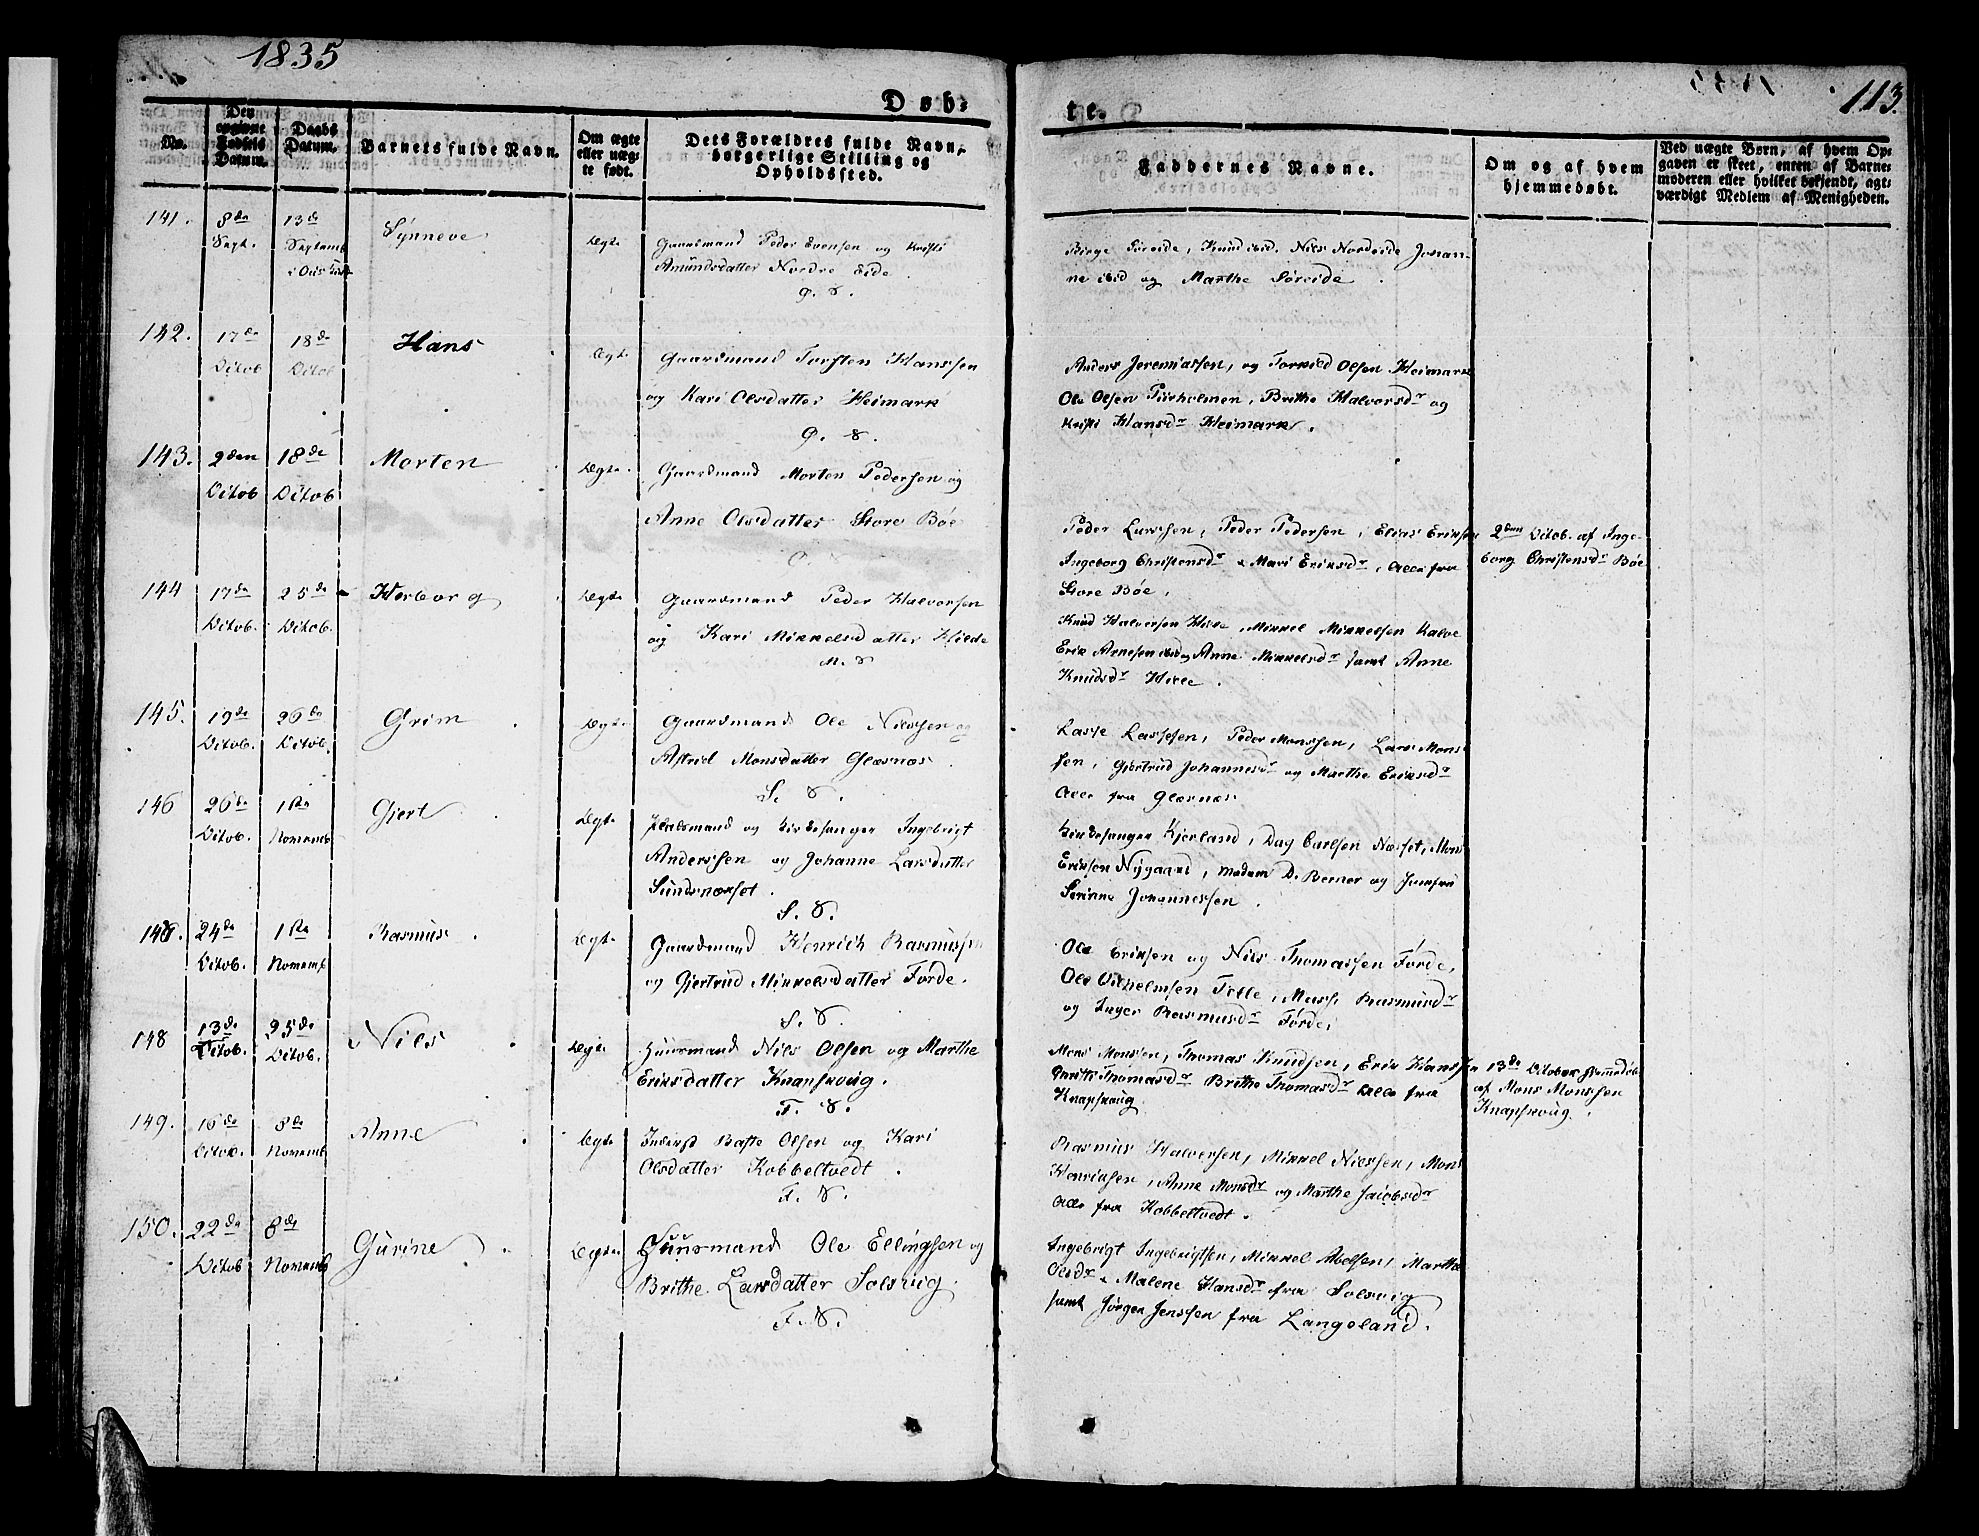 1835
113.
Døb-
te.
No.
Den
opgivne
Fødsels
Datum.
Daabs
Datum.
Barnets fulde Navn.
Om ægte
eller uæg-
te født.
Dets Forældres fulde Navn,
borgerlige Stilling og
Opholdssted.
Faddernes Navne.
Om og af hvem
hjemmedøbt.
Ved uægte Børn, af hvem Op-
gaven er skeet, enten af Barne-
moderen eller hvilket bekjendt, agt-
værdigt Medlem af Menigheden.
141. 8de 13de Synneve Ægte Gaardmand Peder Svensen og Kristi
Sept. Septemb
Amundsdatter Nordre Eide
Børge Søreide, Knud ibid. Nils Nordeide Johan-
ne ibid og Marthe Søreide.
142. 17de 18de Hans Ægte Gaardsmand Torsten Hanssen
Octob Octob
og Kari Olsdatter Heimark
Anders Jeremiassen, og Torkild Olsen Heimark
Ole Olsen Tørholmen, Brithe Halvorsdr og
Kristi Hansdr Heimark.
143. 2den 18de Morten Ægte Gaardsmand Morten Pedersen og
Octob Octob
Anne Olsdatter Store Bøe
Peder Larssen, Peder Pedersen, Elias Eriksen
Ingeborg Christensdr & Mari Eriksdr, Alle fra
Store Bøe.
2den Octob. af Inge-
borg Christensdr Bøe
144 17de 25de Herborg Ægte Gaardsmand Peder Halvorsen
Octob. Octob.
og Kari Mikkelsdatter Hilde
Knud Halvorsen Hilde, Mikkel Mikkelsen Kalve
Erik Arnesen ibid og Anne Mikkelsdr samt Anne
Knudsdr Hilde.
145. 19de 26de Grim Ægte Gaardsmand Ole Nilssen og
Octob. Octob.
Astrid Monsdatter Glæsnæs.
S. S.
Lasse Lassesen, Peder Monssen, Lars Mons-
sen, Gjertrud Johannesdr og Marthe Eriksdr
Alle fra Glæsnæs
146 26de 1ste Gjert Ægte Pladsmand og Kirkesanger Ingebrigt
Octob. Novemb
Anderssen og Johanne Larsdatter
Sundsnæset.
S. S.
Kirkesanger Kjerland, Dag Carlsen Næset, Mons
Eriksen Nygaard, Madam D. Berner og Jomfru
Serinne Johannessen.
24de 1ste Rasmus. Ægte Gaardsmand Henrich Rasmussen
Octob. Novemb
og Gjertrud Mikkelsdatter Førde.
S. S.
Ole Eriksen og Nils Thomassen Førde,
Ole Vilhelmsen Rasmusdr
og Inger Rasmusdr Førde.
148 13de 25de Nils Ægte Huusmand Nils Olsen og Marthe
Octob. Octob.
Eriksdatter Knapskoug.
F. S.
Mons Monssen, Thomas Knudsen, Erik Hanssen
Thomasdr Brithe Thomasdr alle fra
Knapskoug
13de October hjemmedøbt
af Mons Monssen
Knapskoug.
149. 16de 8de Anne Ægte Inderst Baste Olsen og Kari
Octob. Novemb
Olsdatter Kobbeltvedt.
F. S.
Rasmus Halversen, Mikkel Nilssen, Mons
Henriksen, Anne Monsdr og Marthe Jacobsdr
Alle fra Kobbeltvedt.
150. 22de 8de Gurine Ægte Huusmand Ole Ellingsen og
Octob Novemb
Brithe Larsdatter Solsvig.
F. S.
Ingebrigt Ingebrigtsen, Mikkel Abelsen, Marthe
Olsdr & Malene Hansdr fra Solsvig
samt Jørgen Jenssen fra Langeland.